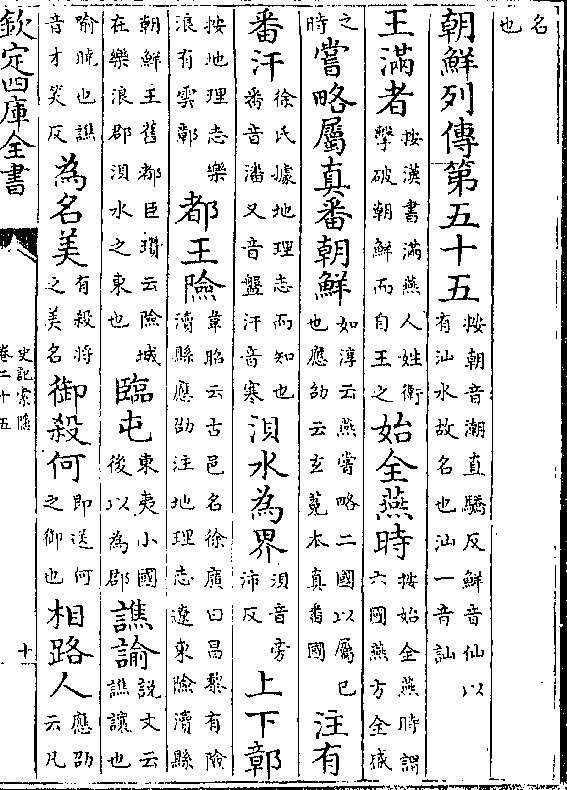 名也
朝鮮列傳第五十五按朝音潮直驕反鮮音仙以有汕水故名也汕一音訕
王滿者按漢書滿燕人姓衛擊破朝鮮而自王之始全燕時按始全燕時謂六國燕方全盛
之時嘗略屬真番朝鮮如淳云燕嘗略二國以屬已也應劭云玄菟本真番國注有
番汗徐氏據地理志而知也番音潘又音盤汗音寒浿水為界浿音旁沛反上下鄣
按地理志樂浪有雲鄣都王險韋昭云古邑名徐廣曰昌黎有險瀆縣應劭注地理志遼東險瀆縣
朝鮮王舊都臣瓚云險城在樂浪郡浿水之東也臨屯東夷小國後以為郡譙諭說文云譙讓也
喻曉也譙音才笑反為名美有殺將之美名御殺何即送何之御也相路人應劭云凡
欽定四庫全書
史記索隱
卷二十五
十